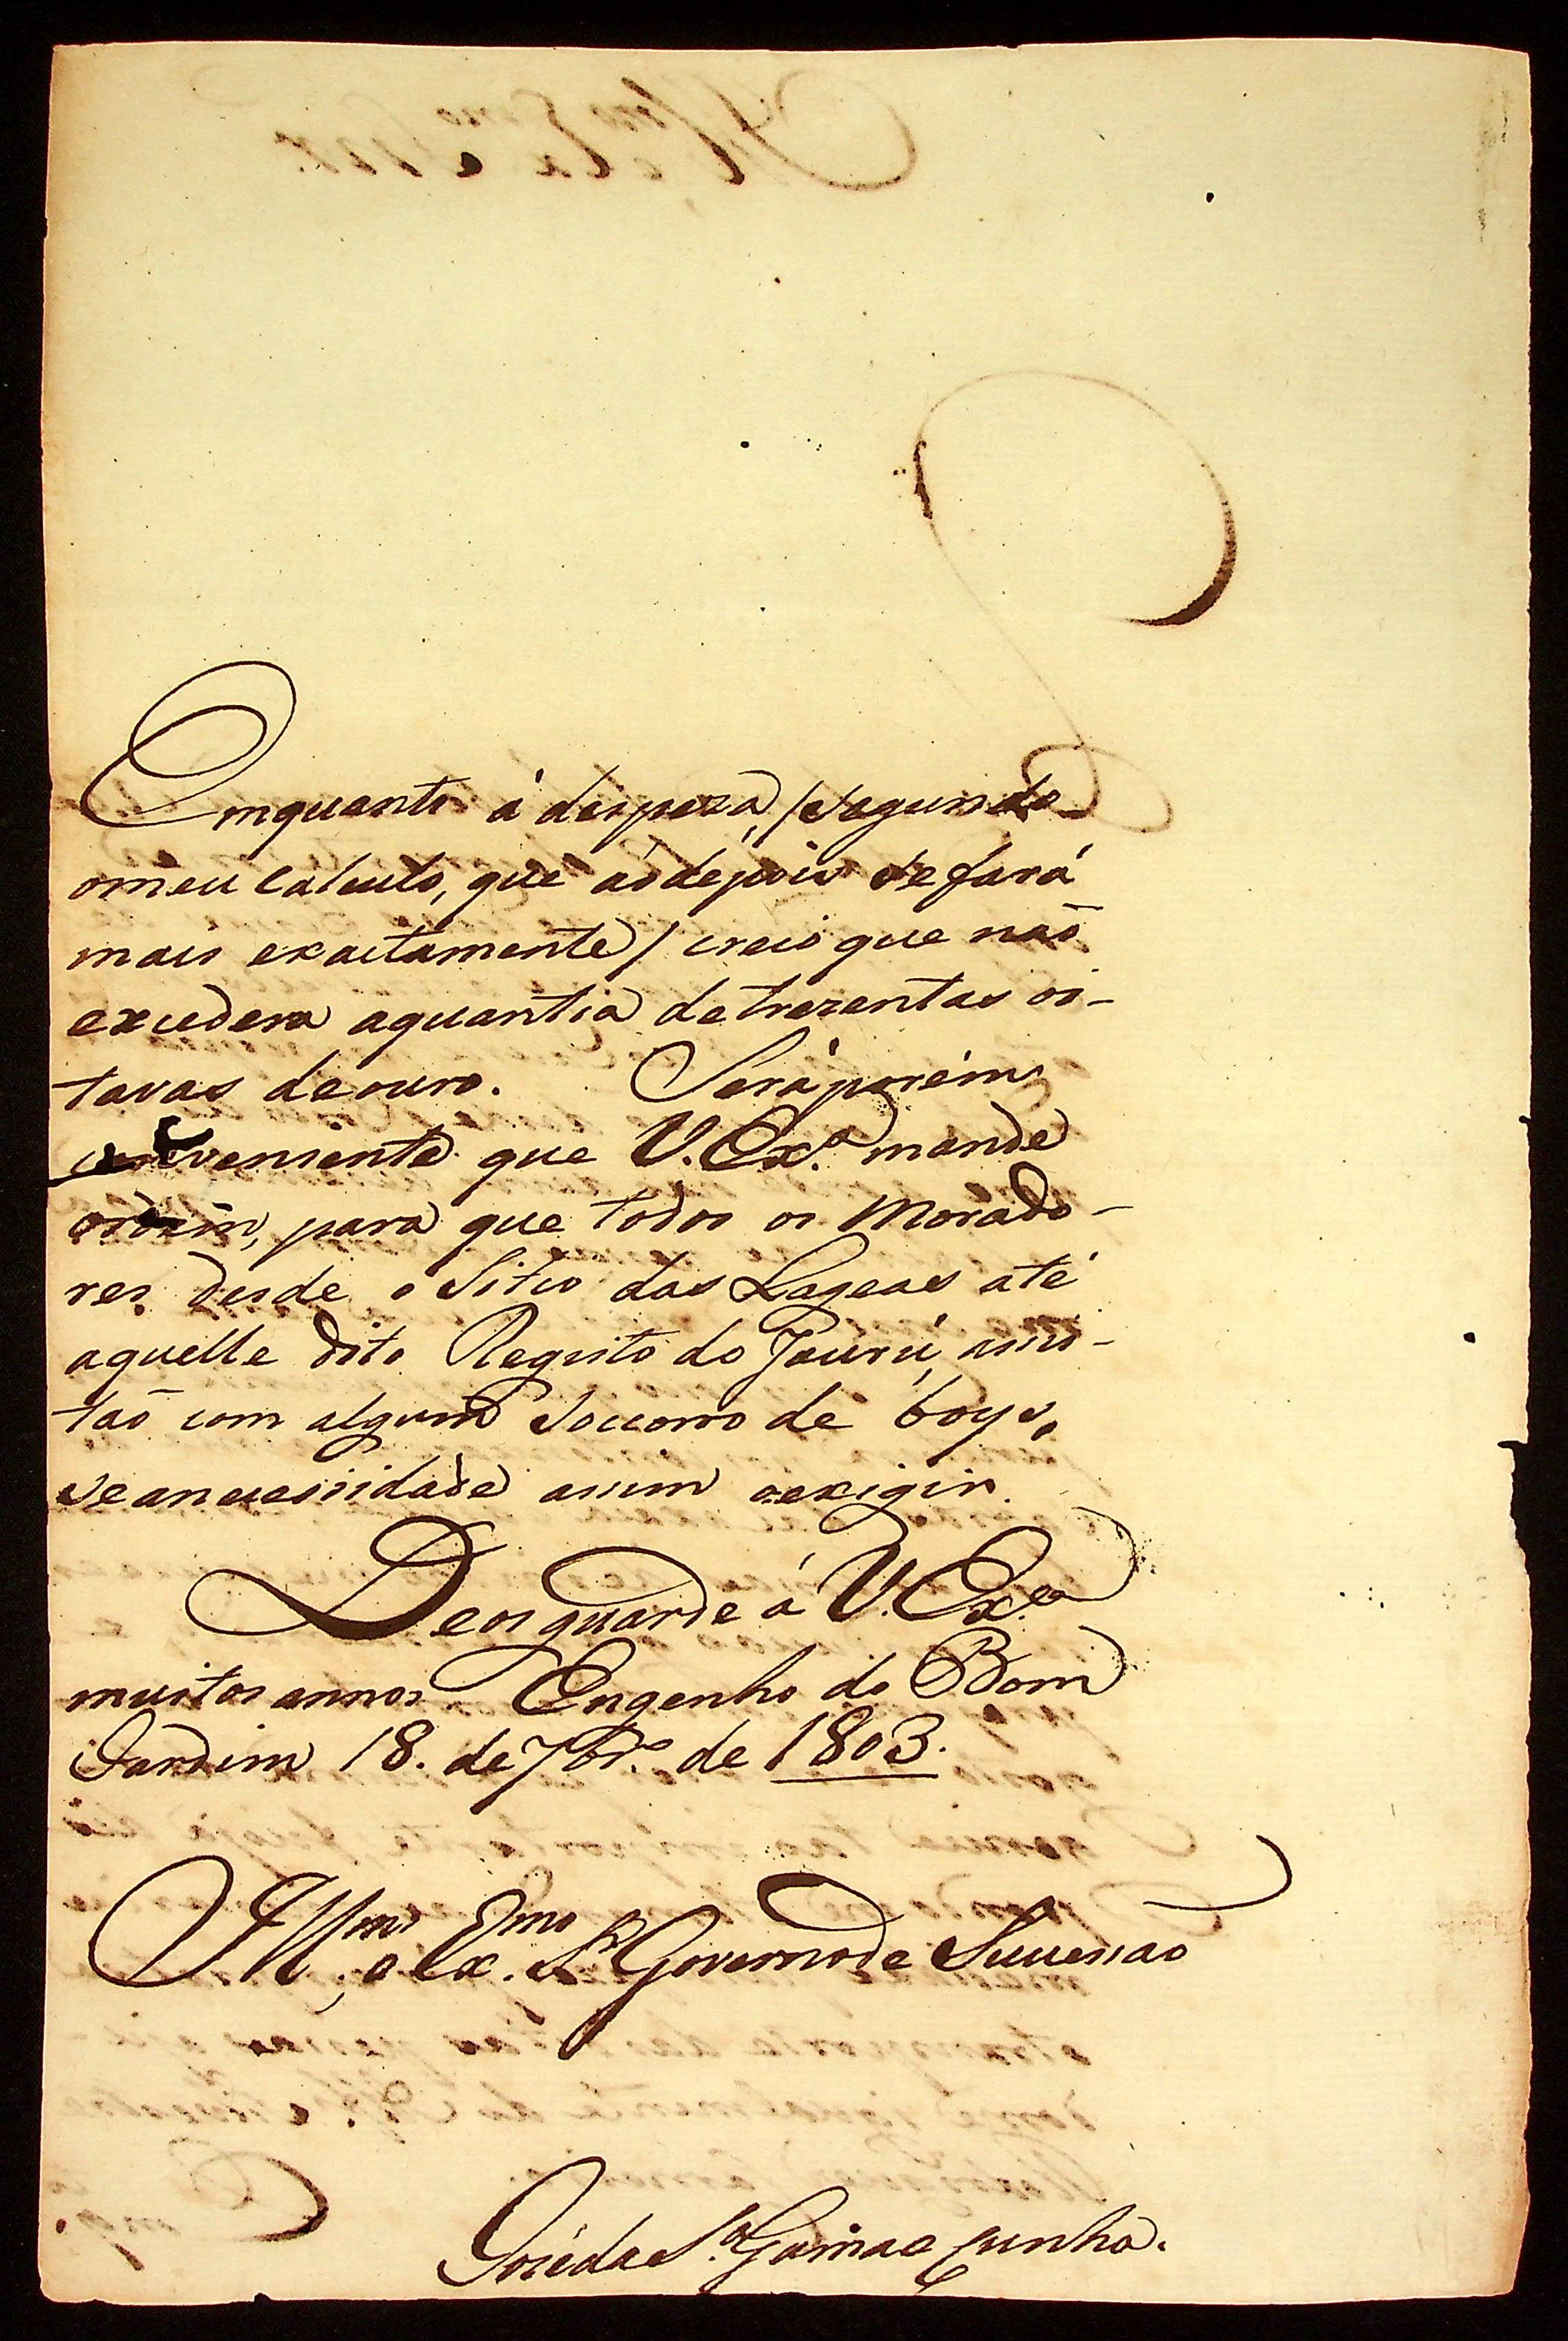 Emquanto á despeza, /segundo
omeu calculo, que aódépois se fará
mais exactamente/ creio que naõ
excederá aquantia detrezentas oi-
tavas deouro. Seráporém
conveniente que V. Ex.ª mande
ordem, para que todos os Morado-
res desde o Sitio das Lageas até
aquelle dito Registo do Jaurú, assis-
taõ com algum Soccorro de boys,
seanecessidade assim oexigir.
Deos guarde á V. Ex.ª
muitos annos. Engenho do Bom
Jardim 18. de 7br.º de 1803.
Ill.mo e Ex.mo Sr. Governo de Sucessaõ
Joséda S.ª Gama e Cunha.